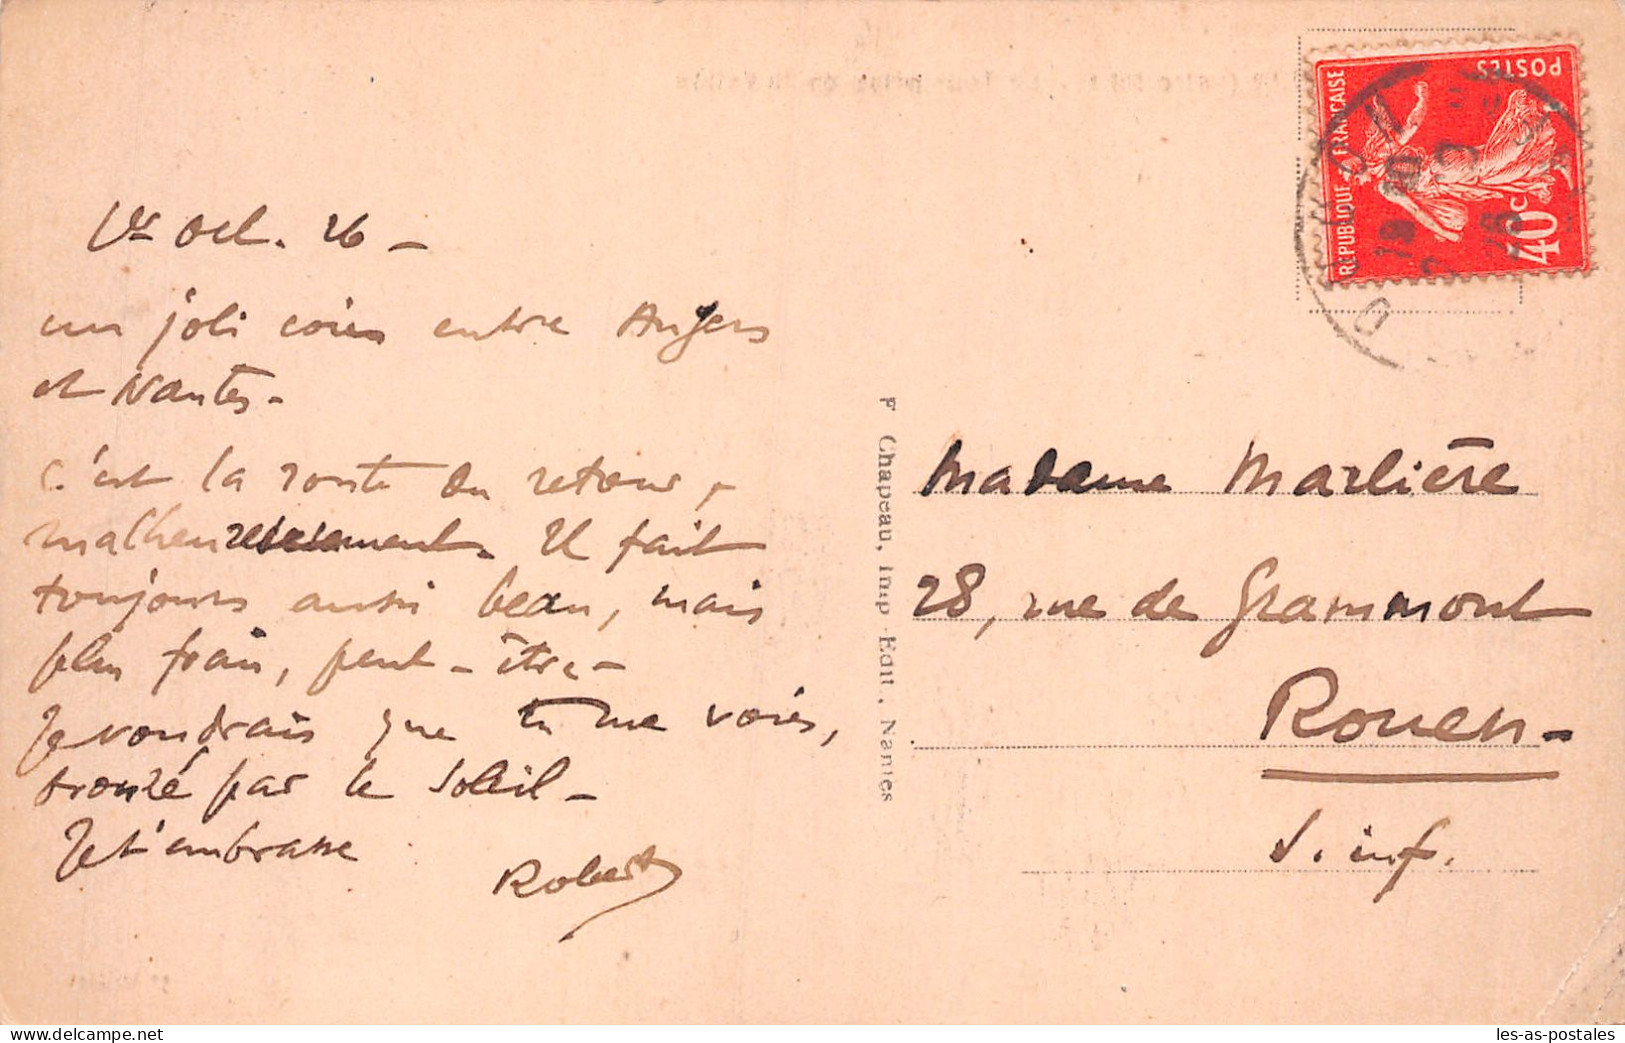 1er Oct. 26 -
un joli coin entre Angers
et Nantes -
C'est la route du retour,
malheureusement. Il fait
toujours aussi beau, mais
plus frais, peut-être -
Je voudrais que tu me voies,
bronzé par le soleil -
Je t'embrasse
Robert
F Chapeau, Imp.-Edit., Nantes
RÉPUBLIQUE FRANÇAISE
POSTES
40c
Madame Marlière
28, rue de Grammont
Rouen -
S. inf.
les-as-postales
www.delcampe.net